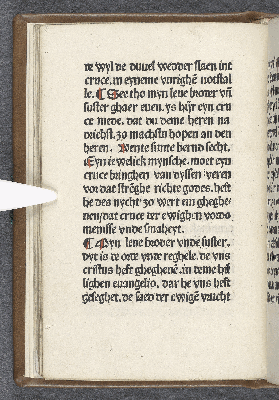 te wyl de duuel wedder slaen int
cruce. in eyneme vurighē notstal
le. ¶ See tho myn leue broder vñ
suster ghaer euen. ys hyr eyn cru
ce mede. dat du deme heren na
wichst. zo machstu hopen an den
heren. Wente sunte bernd secht.
Eyn iewelick mynsche. moet eyn
cruce bringhen van dyssen veren
vor dat strēghe richte godes. heft
he des nycht zo wert em gheghe-
uen/ dat cruce der ewighen vordo
menisse vnde smaheyt.
¶ Myn leue broder vnde suster.
dyt is de orde vnde reghele. de vns
cristus heft gheghenē. in deme hil
lighen euangelio. dar he vns heft
gesecht. de saed der ewigē vrucht